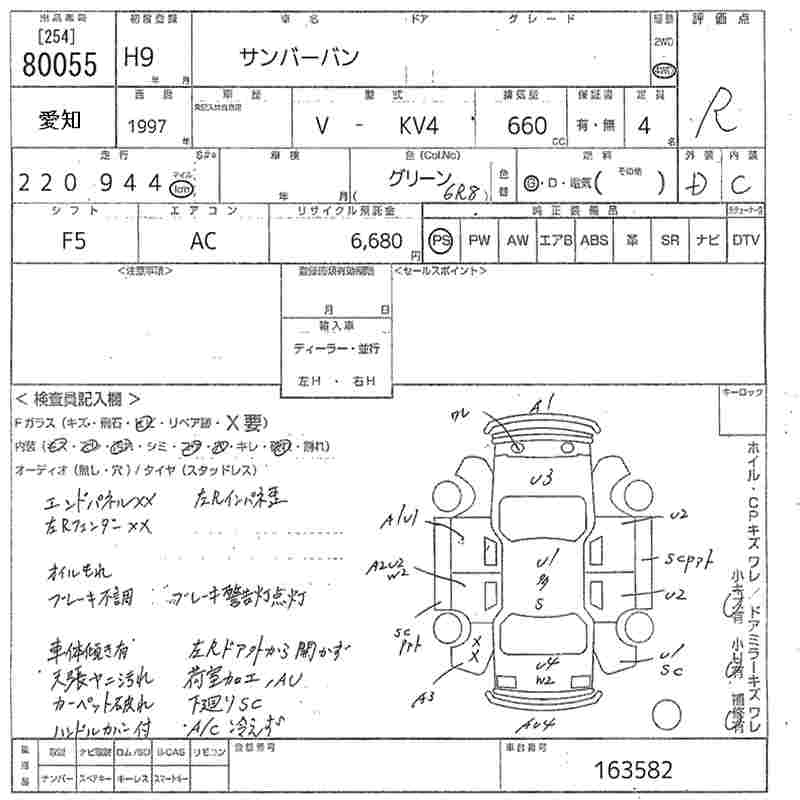 出品番号 初度登録 車名 ドア グレード 駆動 評価点
[254] 80055 H9 年 月 サンバーバン 2WD 4WD R
西暦 車歴 型式 排気量 保証書 定員
愛知 1997 年 V - KV4 660 CC 有・無 4 名
走行 S#* 車検 色(Col.No) 燃料 外装 内装
220944 マイル km 年 月 グリーン (6R8) 色替 G・D・電気( その他 ) D C
シフト エアコン リサイクル預託金 純正装備品
F5 AC 6,680 円 PS PW AW エアB ABS 革 SR ナビ DTV
<注意事項> 登録書類有効期限 <セールスポイント>
月 日
輸入車
ディーラー・並行
左H ・ 右H
キーロック
< 検査員記入欄 >
Fガラス(キズ・飛石・ヒビ・リペア跡・X要)
オーディオ(無し・穴)/タイヤ(スタッドレス)
エンドパネルXX 左Rインパネ歪
左RフェンダーXX
オイルもれ
ブレーキ不調 ブレーキ警告灯点灯
車体傾き有 左Rドア外から開かず
天張ヤニ汚れ 荷室加工、AU
カーペット破れ 下廻りSC
ハンドルカバー付 A/C冷えず
ワレ A1
U3
A1U1 U2
U1 SCPPt
A2U2 W2
S U2
SC PPt
XX U4 W2 U1 SC
A3
AU4
ホイール・CPキズワレ/ドアミラーキズワレ
小キズ有 小凹有 補修有
取説 ナビ取説 ロム/SD B-CAS リモコン 登録番号 車台番号
ナンバー スペアキー キーレス スマートキー 163582